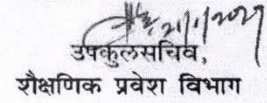 21/1/2021
उपकुलसचिव,
शैक्षणिक प्रवेश विभाग